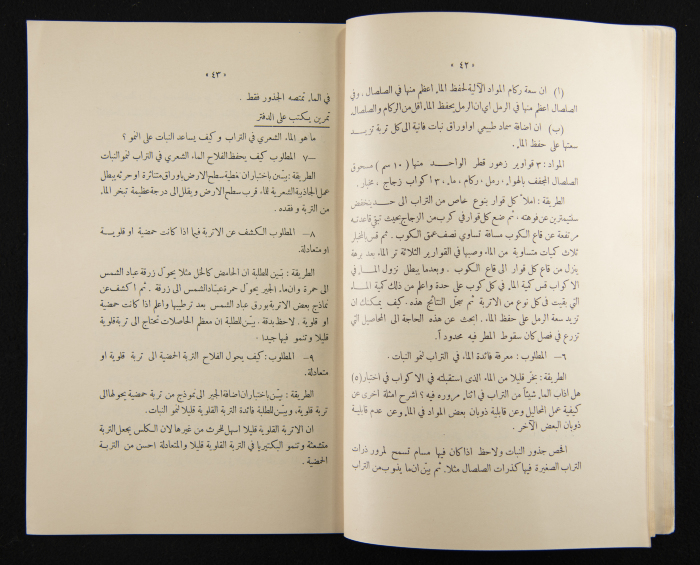 « ٤٢ »
(أ) ان سعة ركام المواد الآلية لحفظ الماء اعظم منها في الصلصال . وفي
الصلصال اعظم منها في الرمل اي ان الرمل يحفظ الماء اقل من الركام والصلصال
(ب) ان اضافة سماد طبيعي او اوراق نبات فانية الى كل تربة تزيد
سعتها على حفظ الماء .
المواد : ٣ قواوير زهور قطر الواحد منها (١٠ سم) مسحوق
الصلصال المجفف بالهواء ، رمل ، ركام ، ماء ، ٣ اكواب زجاج ، مخبار .
الطريقة : املأ كل قوار بنوع خاص من التراب الى حد ينخفض
سنتيمترين عن فوهته ، ثم ضع كل قوار في كوب من الزجاج بحيث تبقى قاعدته
مرتفعة عن قاع الكوب مسافة تساوي نصف عمق الكوب . ثم قس بالمخبار
ثلاث كميات متساوية من الماء وصبها في القوارير الثلاثة تر الماء بعد برهة
ينزل من قاع كل قوار الى قاع الكوب . وبعدما يبطل نزول الماء في
الاكواب قس كمية الماء في كل كوب على حدة واعلم من ذلك كمية الماء
التي بقيت في كل نوع من الاتربة ثم سجّل النتائج هذه . كيف يمكنك ان
تزيد سعة الرمل على حفظ الماء . ابحث عن هذه الحاجة الى المحاصيل التي
تزرع في فصل كان سقوط المطر فيه محدوداً .
٦— المطلوب : معرفة فائدة الماء في التراب لنمو النبات .
الطريقة : بخّر قليلا من الماء الذى استقبلته في الاكواب في اختبار (٥)
هل اذاب الماء شيئاً من التراب في اثناء مروره فيه ؟ اشرح امثلة اخرى عن
كيفية عمل المحاليل وعن قابلية ذوبان بعض المواد في الماء وعن عدم قابلية
ذوبان البعض الآخر .
افحص جذور النبات ولاحظ اذا كان فيها مسام تسمح لمرور ذرات
التراب الصغيرة فيها كذرات الصلصال مثلا . ثم بيّن ان ما يذوب من التراب
« ٤٣ »
في الماء تمتصه الجذور فقط .
تمرين يكتب على الدفتر
ما هو الماء الشعري في التراب وكيف يساعد النبات على النمو ؟
٧— المطلوب كيف يحفظ الفلاح الماء الشعري في التراب لنمو النبات
الطريقة : بيّن باختبار ان تغطية سطح الارض باوراق متناثرة او حرثه يبطل
عمل الجاذبية الشعرية للماء قرب سطح الارض ويقلل الى درجة عظيمة تبخر الماء
من التربة وفقده .
٨— المطلوب الكشف عن الاتربة فيما اذا كانت حمضية او قلويـة
او متعادلة .
الطريقة : بيّن للطلبة ان الحامض كالخل مثلا يحول زرقة عباد الشمس
الى حمرة وان ماء الجير يحول حمرة عباد الشمس الى زرقة . ثم اكشف عن
نماذج بعض الاتربة بورق عباد الشمس بعد ترطيبها واعلم اذا كانت حمضية
او قلوية . لاحظ بدقة . بيّن للطلبة ان معظم الحاصلات تحتاج الى تربة قلوية
قليلا وتنمو فيها جيداً .
٩— المطلوب : كيف يحول الفلاح التربة الحمضية الى تربة قلوية او
متعادلة .
الطريقة : بيّن باختبار ان اضافة الجير الى نموذج من تربة حمضية يحولها الى
تربة قلوية ، وبيّن للطلبة فائدة التربة القلوية قليلا لنمو النبات .
ان الاتربة القلوية قليلا اسهل للحرث من غيرها لان الكلس يجعل التربة
متشعثة وتنمو البكتيريا في التربة القلوية قليلا والمتعادلة احسن من التربـة
الحمضية .